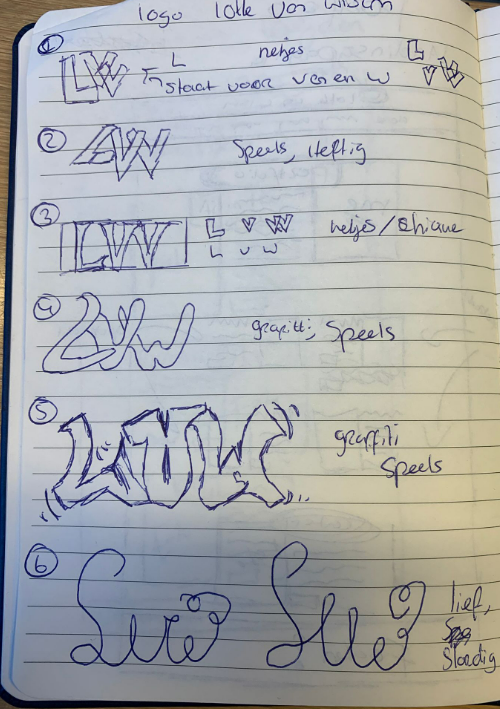 logo lotte van
1 LW L netjes L V W
staat voor v en w
2 LVW Speels, Heftig
3 LVW L V W netjes / chique
L V W
4 LVW graffiti, Speels
5 LVW graffiti
Speels
6 Lvw Lvw lief,
Slordig